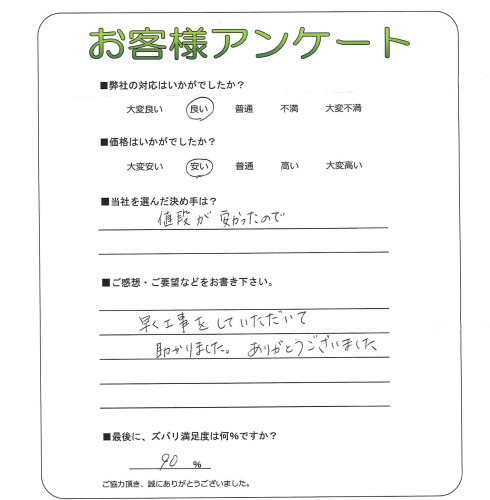 お客様アンケート
■弊社の対応はいかがでしたか？
大変良い 良い 普通 不満 大変不満
■価格はいかがでしたか？
大変安い 安い 普通 高い 大変高い
■当社を選んだ決め手は？
値段が安かったので
■ご感想・ご要望などをお書き下さい。
早く工事をしていただいて
助かりました。ありがとうございました
■最後に、ズバリ満足度は何%ですか？
90 %
ご協力頂き、誠にありがとうございました。